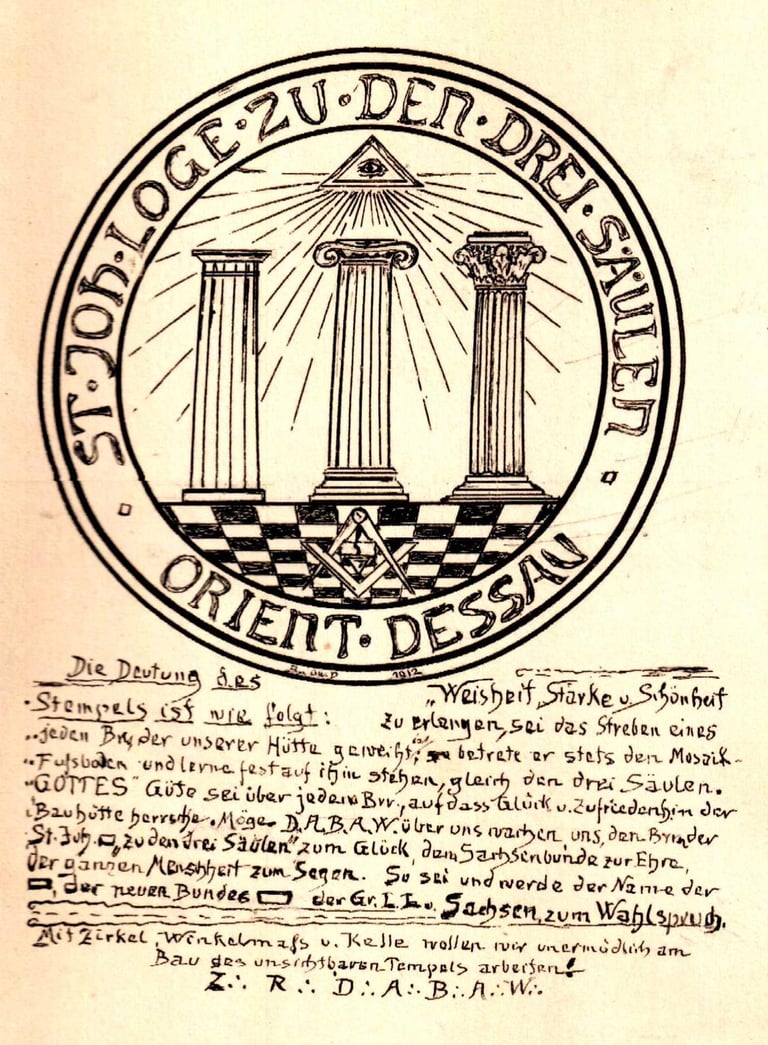 ST·JOH·LOGE·ZU·DEN·DREI·SÄULEN
ORIENT·DESSAU
1912
Die Deutung des
Stempels ist wie folgt:
„Weisheit, Stärke u. Schönheit
zu erlangen, sei das Streben eines
jeden Bruder unserer Hütte geweiht, betrete er stets den Mosaik-
Fußboden und lerne fest auf ihm stehen, gleich den drei Säulen.
"GOTTES" Güte sei über jedem Brr., auf dass Glück u. Zufriedenh. in der
Bauhütte herrsche. Möge D.A.B.A.W. über uns wachen, uns, den Brüder
St. Joh. „zu den drei Säulen" zum Glück, dem Sachsenbunde zur Ehre,
der ganzen Menschheit zum Segen. So sei und werde der Name der
, der neuen Bundes der Gr. L. L. v. Sachsen, zum Wahlspruch.
Mit Zirkel, Winkelmaß u. Kelle wollen wir unermüdlich am
Bau des unsichtbaren Tempels arbeiten!
Z∴ R∴ D∴A∴B∴A∴W∴